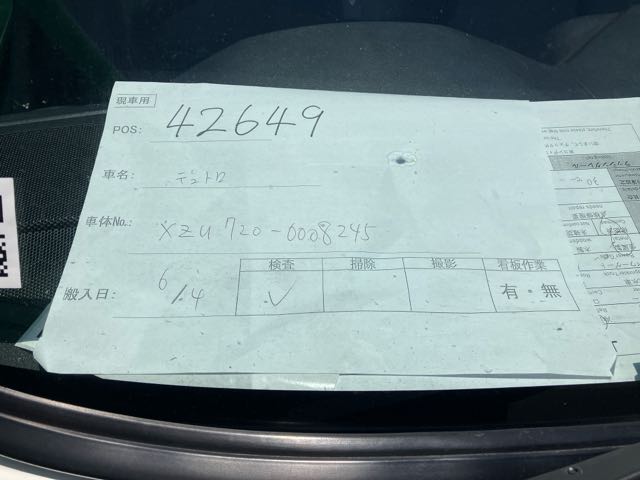 現車用
POS: 42649
車名: デュトロ
車体No.: XZU720-0008245
搬入日: 6/4
検査 掃除 撮影 看板作業
✓ 有・無